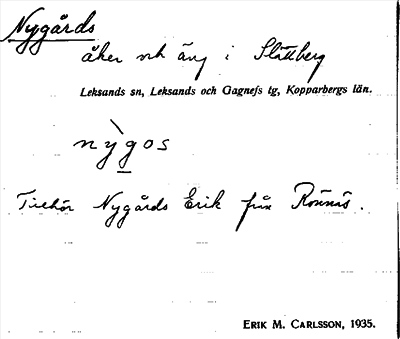 Nygårds
åker och äng i Slättberg
Leksands sn, Leksands och Gagnefs tg, Kopparbergs län.
nỳgos
Tillhör Nygårds Erik från Rönnäs.
ERIK M. CARLSSON, 1935.